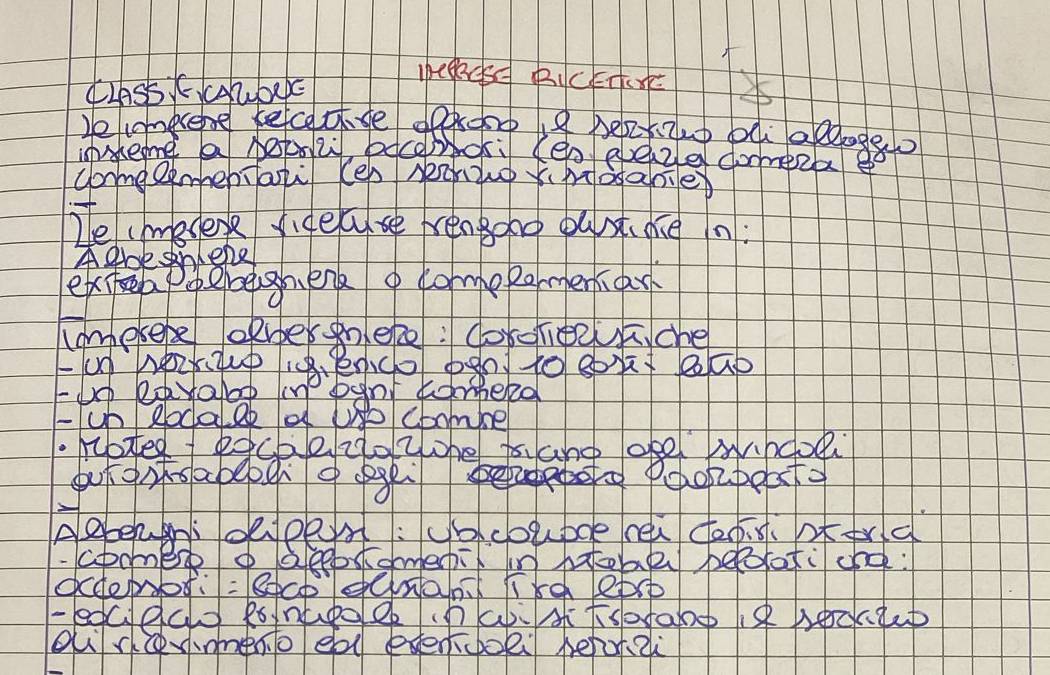 IMPRESE RICETTIVE
CLASSIFICAZIONE
le imprese ricettive offrono il servizio di alloggio
insieme a servizi accessori (es. pulizia camera e
complementari (es servizio ristorante)
Le imprese ricettive vengono distinte in:
Alberghiere
extra alberghiere o complementari
Imprese alberghiere: Caratteristiche
- un servizio igienico ogni 10 posti letto
- un lavabo in ogni camera
- un locale a uso comune
· Motel - localizzazione vicino agli svincoli
autostradali o agli aeroporto
Alberghi diffusi: ubicazione nei centri storici
- camere o appartamenti in stabili separati
accessori: poco distanti tra loro
- edificio principale in cui si trovano il servizio
di ricevimento ed eventuali servizi